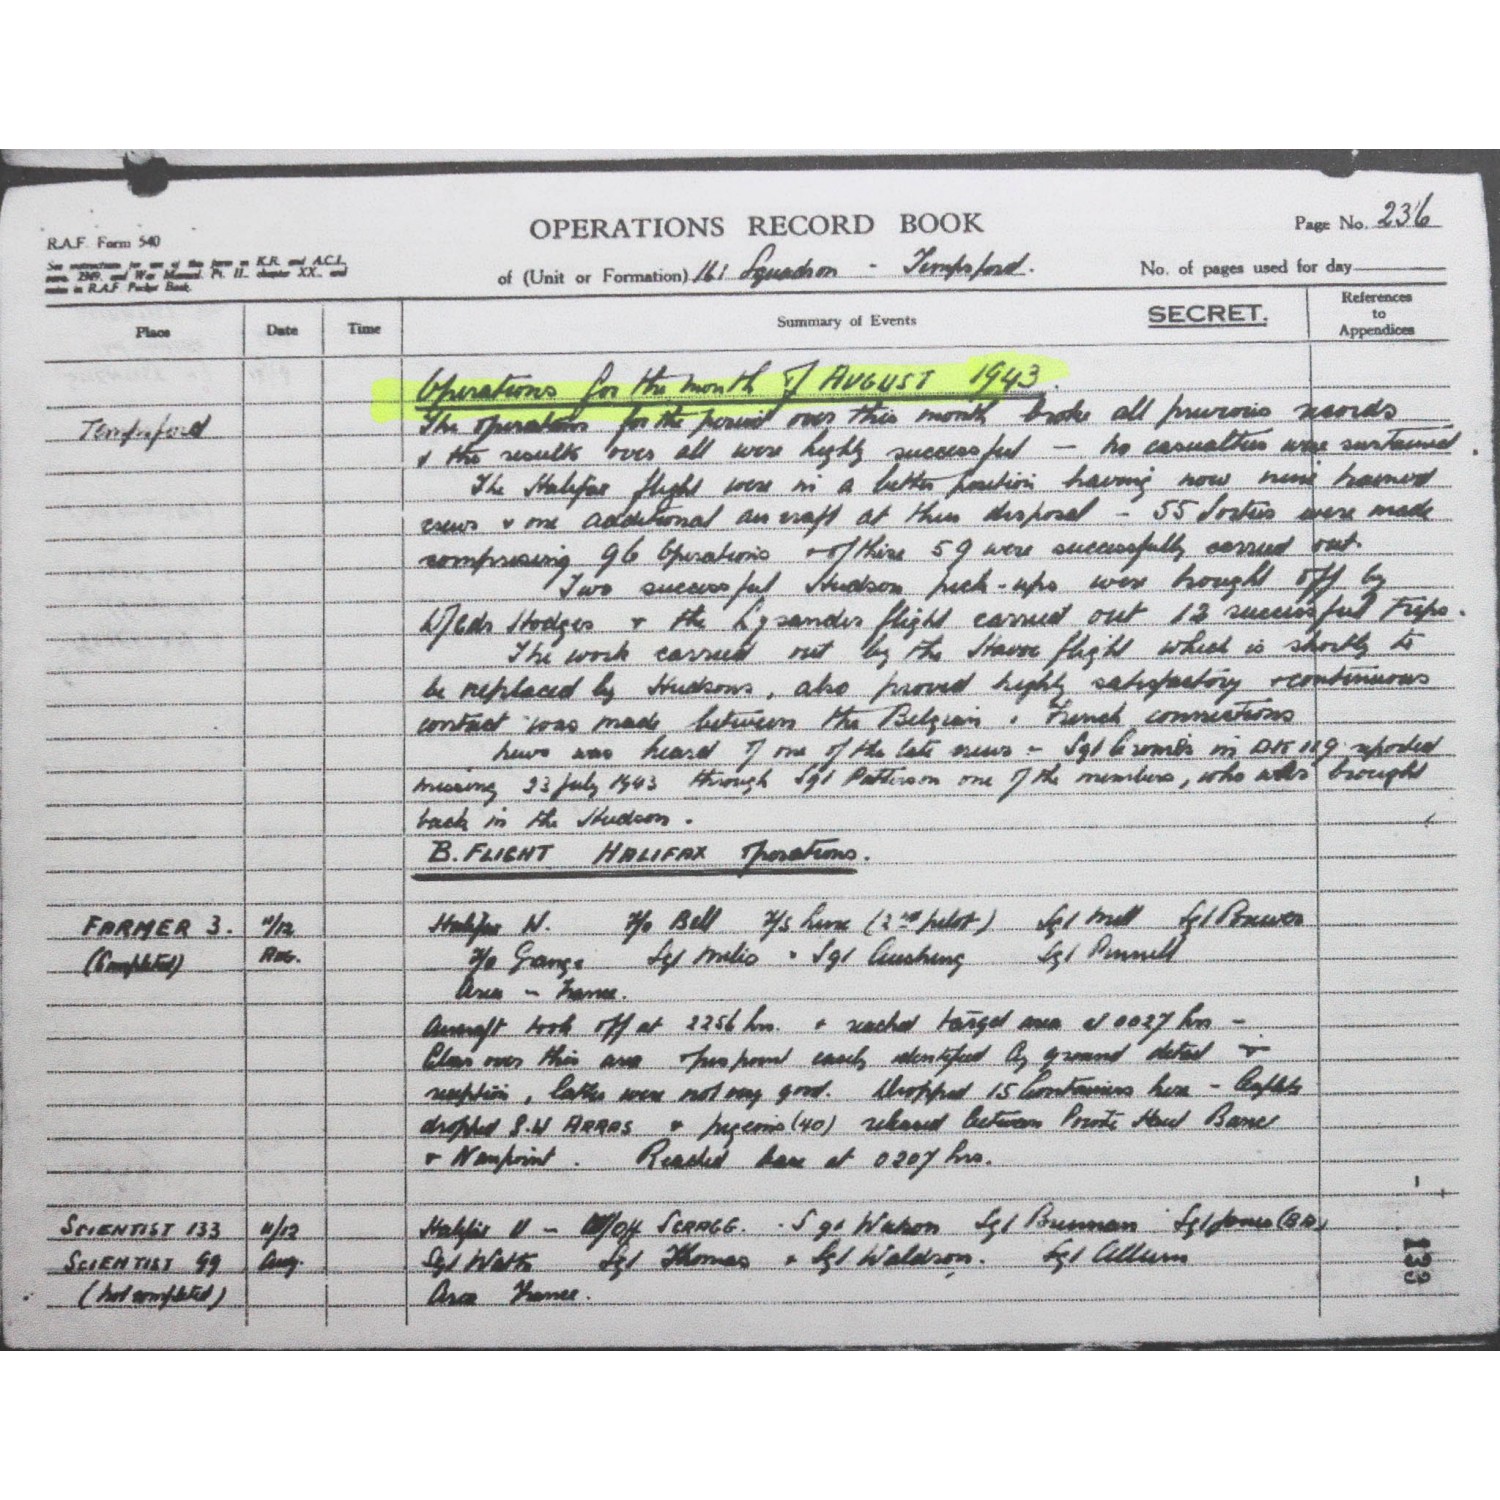 OPERATIONS RECORD BOOK
Page No. 236
R.A.F. Form 540
See instructions for use of this form in K.R. and A.C.I.,
para. 2349, and War Manual, Pt. II., chapter XX., and
notes in R.A.F. Pocket Book.
of (Unit or Formation) 161 Squadron - Tempsford.
No. of pages used for day
Place Date Time Summary of Events SECRET. References to Appendices
Operations for the month of AUGUST 1943.
Tempsford The operations for the period over this month broke all previous records
& the results over all were highly successful - no casualties were sustained.
The Halifax flight were in a better position having now nine trained
crews & one additional aircraft at their disposal - 55 Sorties were made
comprising 96 Operations & of these 59 were successfully carried out.
Two successful Hudson pick-ups were brought off by
W/Cdr Hodges & the Lysander flight carried out 12 successful trips.
The work carried out by the Havoc flight which is shortly to
be replaced by Hudsons, also proved highly satisfactory & continuous
contact was made between the Belgian & French connections
News was heard of one of the late crews - Sgt in 119 reported
missing 23 July 1943 through Sgt Patterson one of the members, who was brought
back in the Hudson.
B. FLIGHT HALIFAX Operations.
FARMER 3. 11/12 Halifax N. F/O Bell F/S (2nd pilot) Sgt Mell Sgt
(Completed) Aug. F/O Grange Sgt & Sgt Cushing Sgt Pinnell
Area - France.
Aircraft took off at 2256 hrs. & reached target area at 0027 hrs -
over this area & pinpoint easily identified by ground detail &
reception, latter were not very good. Dropped 15 Containers here - leaflets
dropped S.W ARRAS & pigeons (40) released between
& Reached base at 0207 hrs.
SCIENTIST 133 11/12 Halifax - W/Off SCRAGG. Sgt Watson Sgt Brennan Sgt Jones (BA)
SCIENTIST 99 Aug. Sgt Watts Sgt Thomas & Sgt Waldson. Sgt
(not completed) Area France.
133